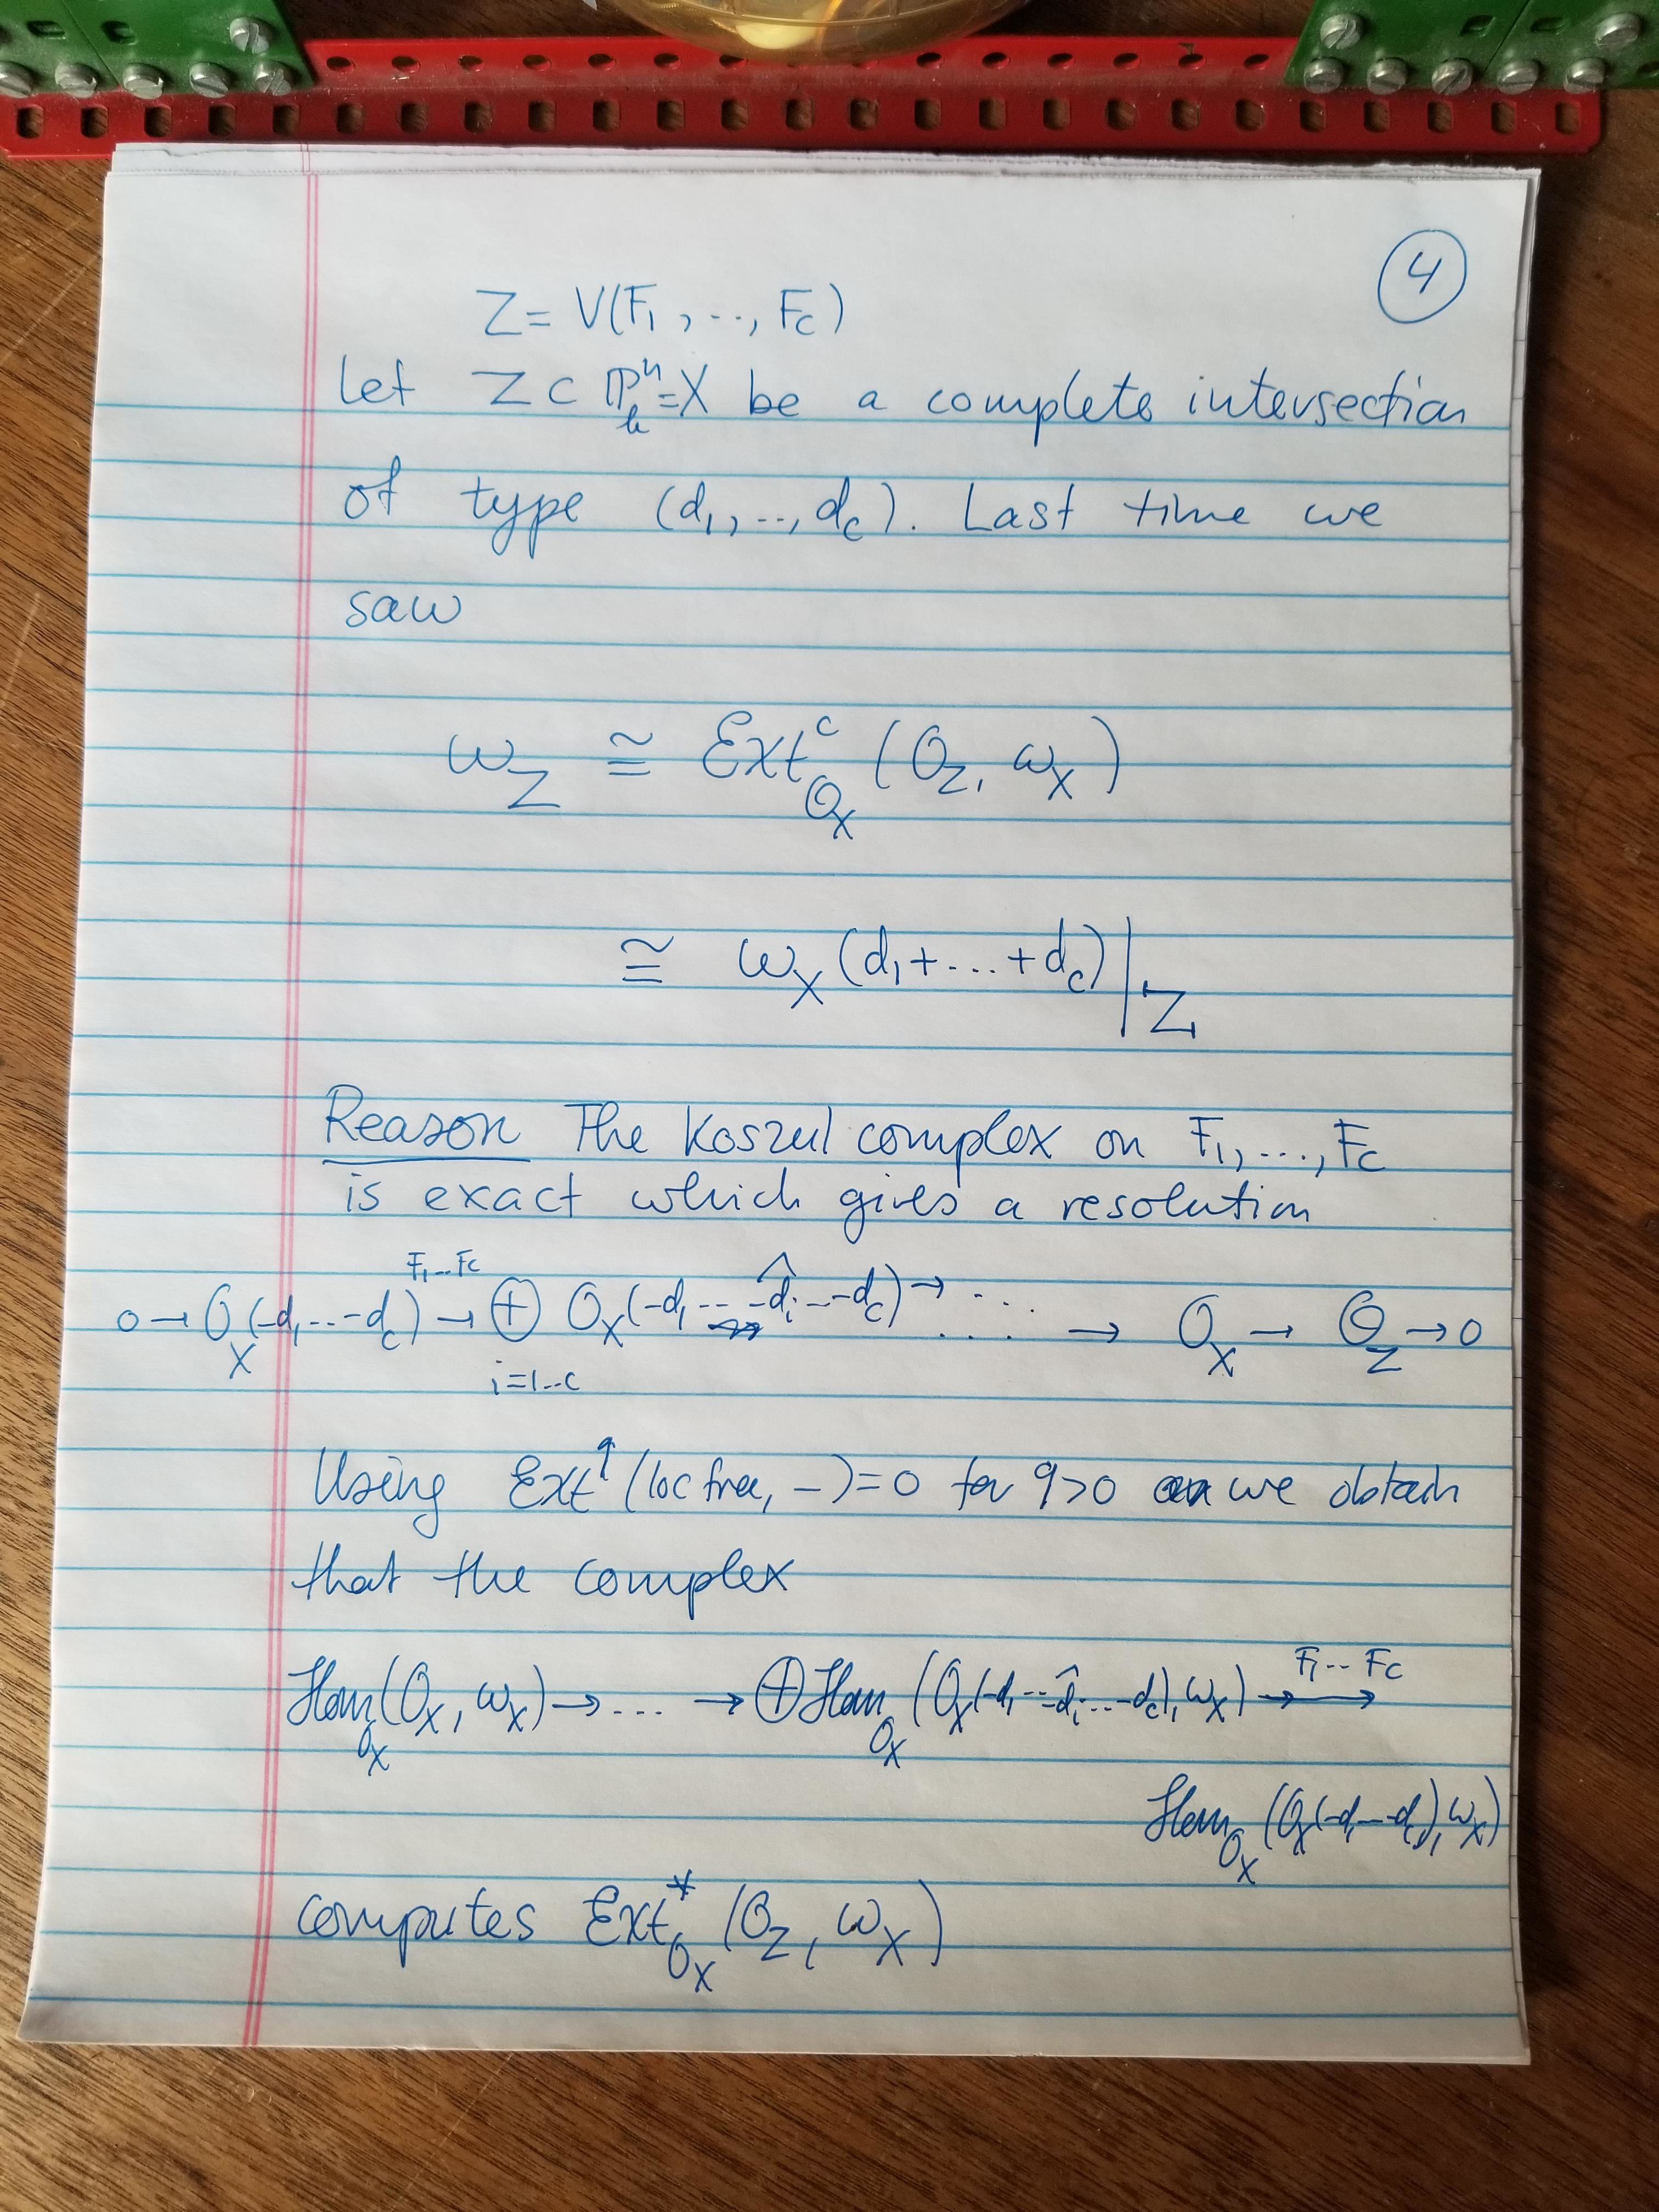 4
Z = V(F₁, .., F_c)
Let Z ⊂ ℙⁿ_k = X be a complete intersection
of type (d₁, .., d_c). Last time we
saw
ω_Z ≅ Ext^c_{O_X} (O_Z, ω_X)
≅ ω_X (d₁ + ... + d_c)|_Z
Reason The Koszul complex on F₁, ..., F_c
is exact which gives a resolution
0 → O_X(-d₁...-d_c) →^{F₁...F_c} ⊕_{i=1..c} O_X(-d₁ ... -d̂_i ... -d_c) → ... → O_X → O_Z → 0
Using Ext^q (loc free, -) = 0 for q>0 we obtain
that the complex
Hom_{O_X}(O_X, ω_X) → ... → ⊕ Hom_{O_X} (O_X(-d₁ ... -d̂_i ... -d_c), ω_X) →^{F₁...F_c}
Hom_{O_X} (O_X(-d₁...-d_c), ω_X)
computes Ext^*_{O_X} (O_Z, ω_X)